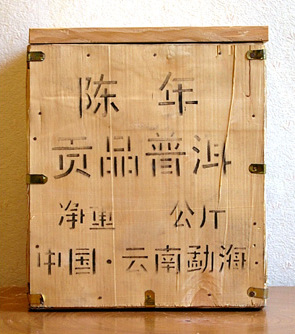 陈年
贡品普洱
净重 公斤
中国·云南勐海